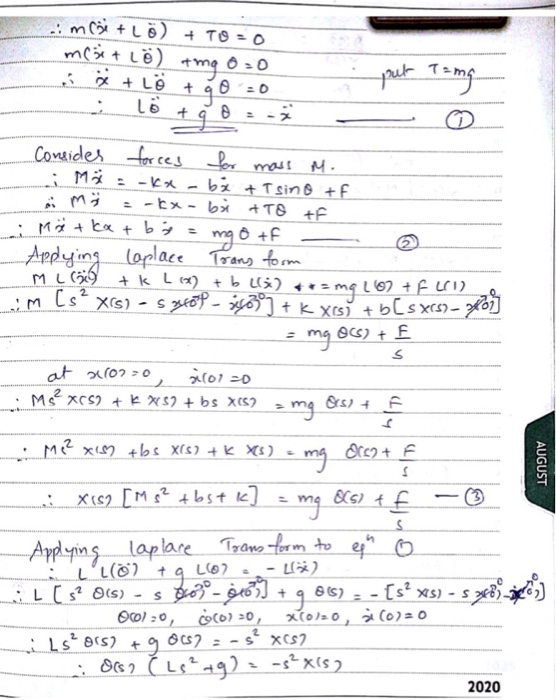 ∴ m(ẍ + Lθ̈) + Tθ = 0
m(ẍ + Lθ̈) + mgθ = 0
put T = mg
∴ ẍ + Lθ̈ + gθ = 0
∴ Lθ̈ + gθ = -ẍ ——— ①
Consider forces for mass M.
∴ Mẍ = -kx - bẋ + T sinθ + F
∴ Mẍ = -kx - bẋ + Tθ + F
∴ Mẍ + kx + bẋ = mgθ + F ——— ②
Applying laplace Trans form
M L(ẍ) + k L(x) + b L(ẋ) = mg L(θ) + F L(1)
∴ M [s² X(s) - s x(0)⁰ - ẋ(0)⁰] + k X(s) + b[s X(s) - x(0)⁰]
= mg θ(s) + F/s
at x(0) = 0, ẋ(0) = 0
∴ Ms² X(s) + k X(s) + bs X(s) = mg θ(s) + F/s
∴ Ms² X(s) + bs X(s) + k X(s) = mg θ(s) + F/s
∴ X(s) [Ms² + bs + k] = mg θ(s) + F/s — ③
AUGUST
Applying laplace Trans form to eqⁿ ①
∴ L L(θ̈) + g L(θ) = - L(ẍ)
∴ L [s² θ(s) - s θ(0)⁰ - θ̇(0)⁰] + g θ(s) = - [s² X(s) - s x(0)⁰ - ẋ(0)⁰]
θ(0) = 0, θ̇(0) = 0, x(0) = 0, ẋ(0) = 0
∴ Ls² θ(s) + g θ(s) = -s² X(s)
∴ θ(s) (Ls² + g) = -s² X(s)
2020